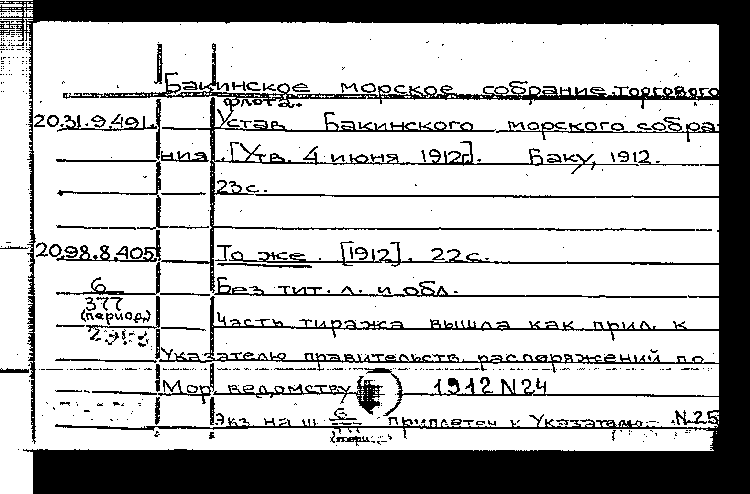 Бакинское морское собрание торгового
флота.
20.31.9.491. Устав Бакинского морского собра-
ния. [Утв. 4 июня 1912г]. Баку, 1912.
23с.
20.98.8.405 То же. [1912]. 22с.
6/377 (период) Без тит. л. и обл.
Часть тиража вышла как прил. к
Указателю правительств. распоряжений по
Мор. ведомству 1912 N24
Экз. на ш. 6 приплетен к Указателю N.25